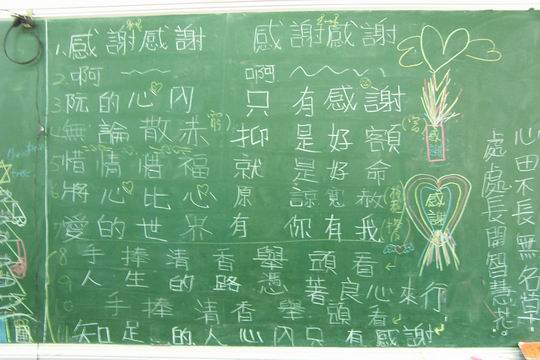 1. 感謝感謝 感謝感謝
2. 啊 啊
3 阮的心內 只有感謝
4 無論散赤(窮) 抑是好額(富)
5 惜情惜福 就是好命
6 將心比心 原諒寬赦
7 愛的世界 有你有我
8 手捧清香舉頭看
9 人生的路憑著良心來行
10 手捧清香舉頭看
11 知足的人心內只有感謝
感謝
感謝
心田不長無名草
處處長開智慧花